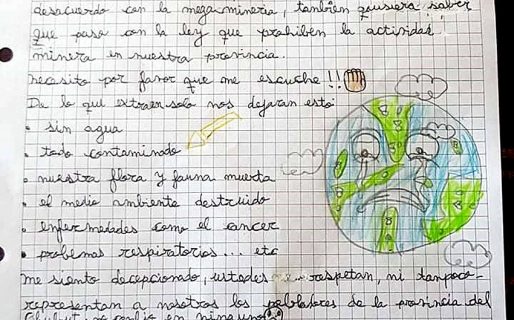 desacuerdo con la mega mineria, también quisiera saber
que pasa con la ley que prohiben la actividad
minera en nuestra provincia.
necesito por favor que me escuche!!
De lo que extraen solo nos dejaran esto:
• sin agua
• todo contaminado
• nuestra flora y fauna muerta
• el medio ambiente destruido
• enfermedades como el cancer
• problemas respiratorios... etc
me siento decepcionado, ustedes respetan, ni tampoco
representan a nosotros los pobladores de la provincia del
Chubut, no confio en ninguno